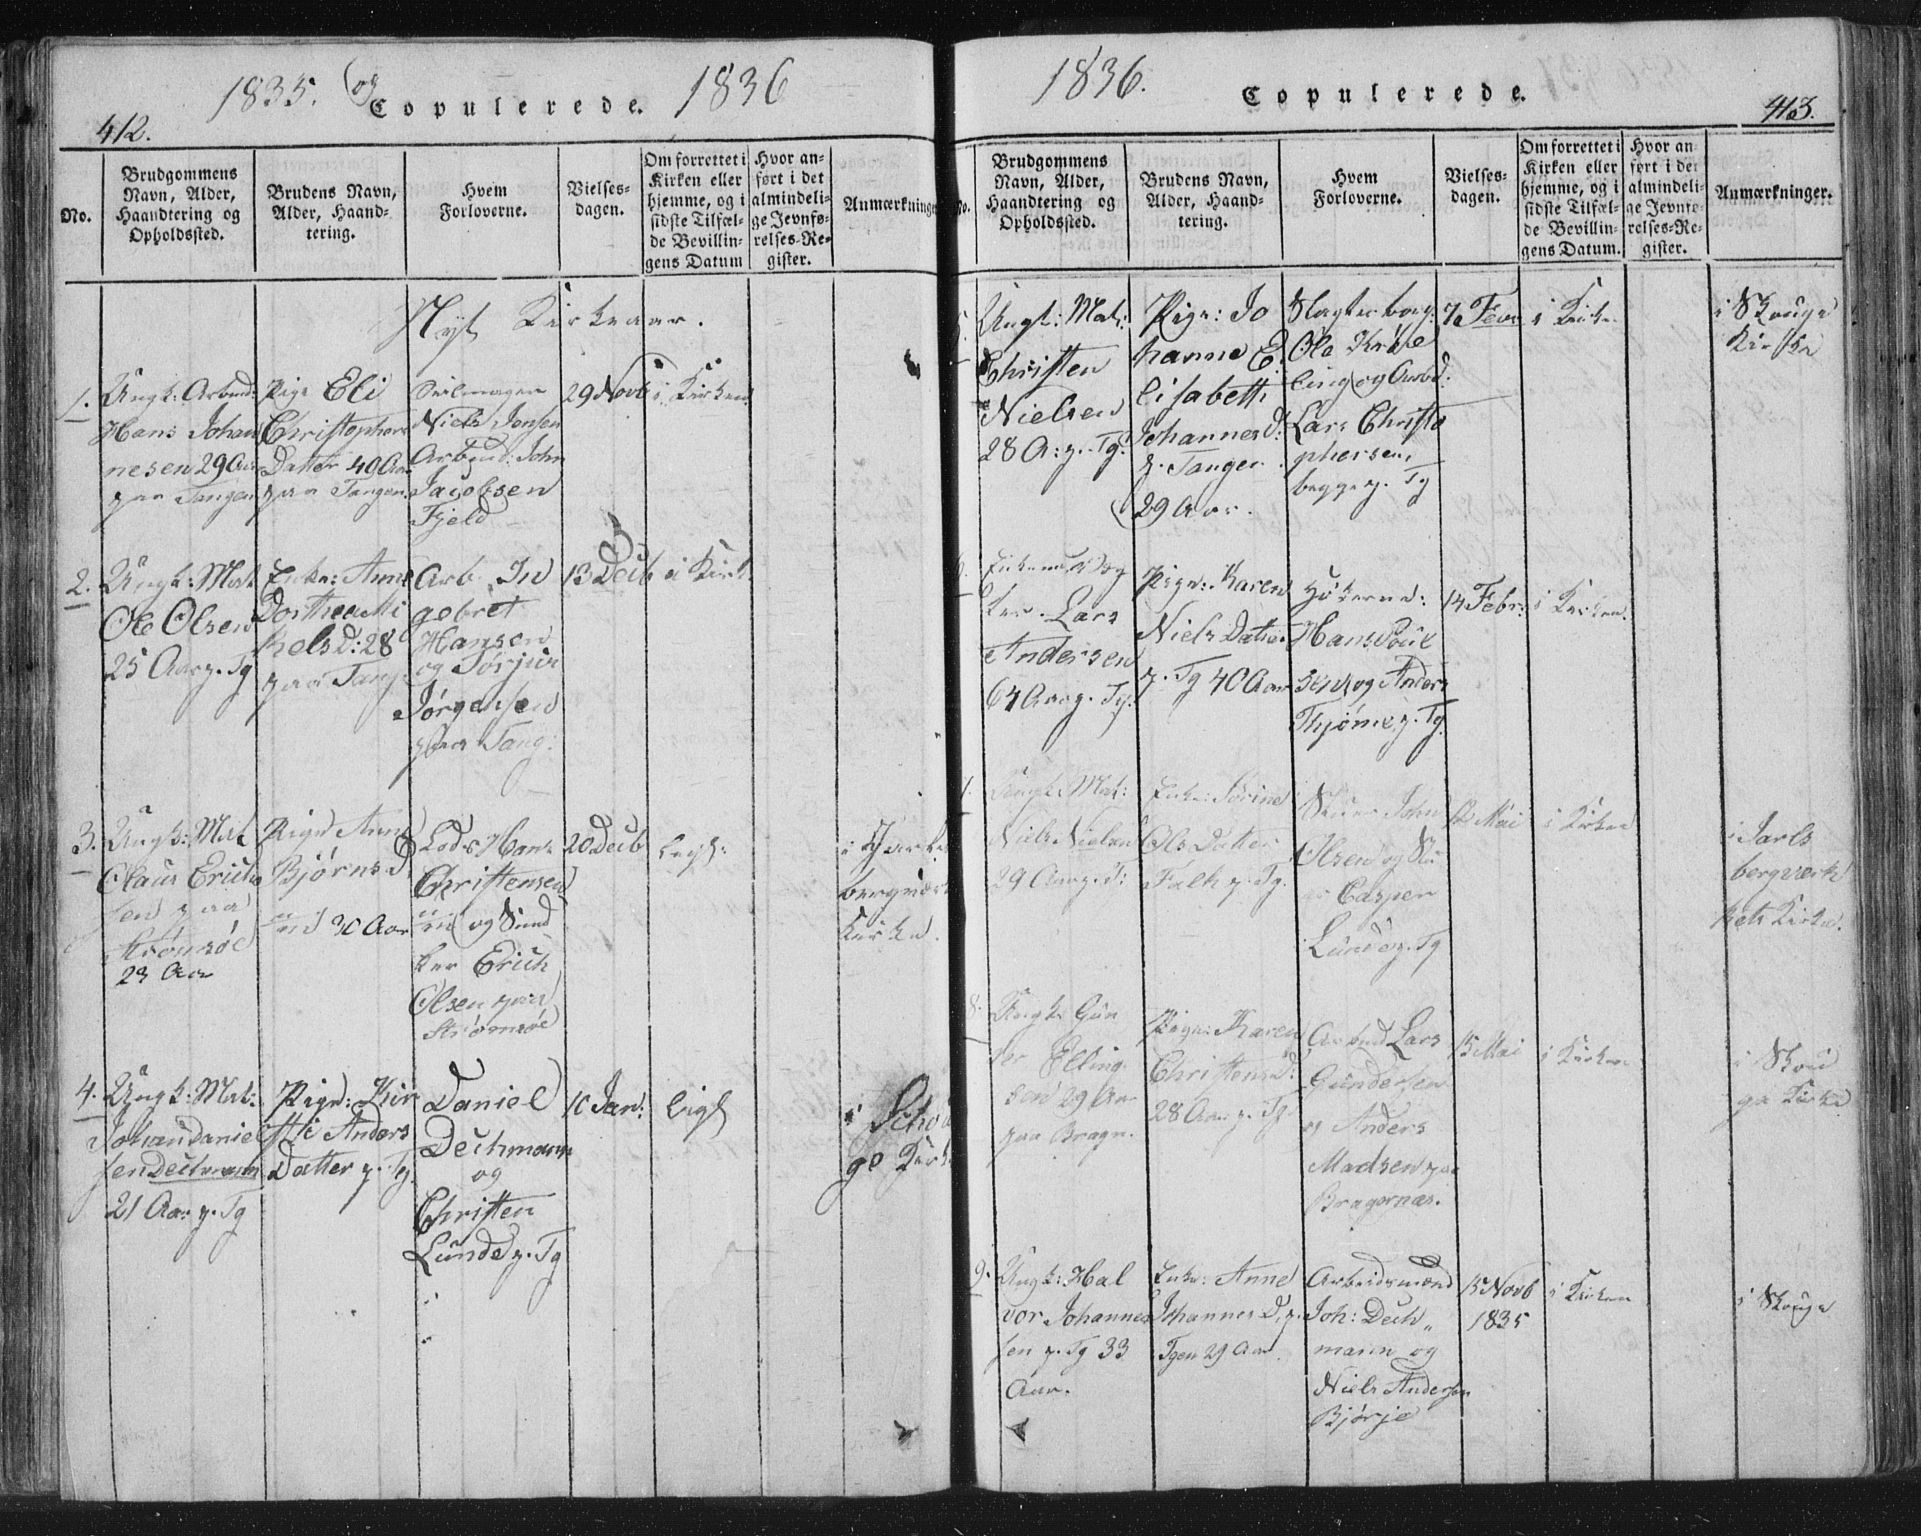 1835. og 1836
Copulerede.
412.
No.
Brudgommens Navn, Alder, Haandtering og Opholdssted.
Brudens Navn, Alder, Haandtering.
Hvem Forloverne.
Vielsesdagen.
Om forrettet i Kirken eller hjemme, og i sidste Tilfælde Bevillingens Datum
Hvor anført i det almindelige Jevnførelses-Register.
Anmærkninger
Nyt Kirkeaar.
1.
Ungk: Arbmd:
Hans Johan
nesen 29 Aar
paa Tangen
Pige Eli
Christophers
Datter 40 Aar
paa Tangen
Seilmager
Niels Jonsen
Arbmd: John
Jacobsen
Fjeld
29 Novb
i Kirken
2.
Ungk: Mat
Ole Olsen
25 Aar p. Tg
Enke: Anne
Dorthea Mi
kelsD: 28
paa Tang
Arb. In
gebret
Hansen
og Tørjus
Jørgensen
paa Tang:
13 Decb
i Kirk
3.
Ungk: Mat
Claus Erich
sen paa
Strømsøe
23 Aar
Pige Anne
BjørnsD
30 Aar
Lods Hans
Christensen
og Sned
ker Erich
Olsen paa
Strømsøe
20 Decb
ligt:
i Jarls
bergværk
Kirke.
4.
Ungk: Mat:
Johan Daniel
sen Dechmann
21 Aar p. Tg
Pige: Kir
sti Anders
Datter p. Tg.
Daniel
Dechmann
og
Christen
Lunde p. Tg
10 Jan:
ligt
i Schou
ge Kirke
1836.
Copulerede.
413.
No.
Brudgommens Navn, Alder, Haandtering og Opholdssted.
Brudens Navn, Alder, Haandtering.
Hvem Forloverne.
Vielsesdagen.
Om forrettet i Kirken eller hjemme, og i sidste Tilfælde Bevillingens Datum.
Hvor anført i det almindelige Jevnførelses-Register.
Anmærkninger.
5.
Ungk: Mat:
Christen
Nielsen
28 A: p. Tg:
Pige: Jo
hanne E
lisabeth
Johannesd:
p. Tangen
29 Aar.
Slagterborg:
Ole Kræe
ling og Arbd:
Lars Christo
phersen,
begge p. Tg
7 Febr
i Kirke
i Skouge
Kirke
6.
Enkemand
Lars
Andersen
64 Aar p. Tg.
Pige: Karen
Niels Datter
p. Tg 40 Aar
Høkerne:
Hans Poul
sen og Anders
Thjøme p. Tg.
14 Febr:
i Kirken.
7.
Ungk: Mat:
Niels Nielsen
29 Aar p. T:
Enke: Sørine
Ols Datter
Falk p. Tg.
John
Olsen og
Casper
Lunde p. Tg
12 Mai
i Kirken
i Jarls
bergværk
kets Kirke.
8.
Ungk: Gun
der Elling
sen 29 Aar
paa Bragn.
Pige: Karen
ChristensD:
28 Aar p. Tg
Arbmd Lars
Gundersen
og Anders
Madsen paa
Bragernæs.
15 Mai
i Kirken
i Skou
ga Kirke
9.
Ungk: Hal
vor Johannes
sen p. Tg 33
Aar.
Enke: Anne
JohannesD, p.
Tgen 29 Aar
Arbeidsmænd
Joh: Dech„
mann og
Niels Andersen
Bjørje
15 Novb
1835
i Kirken
i Skouge